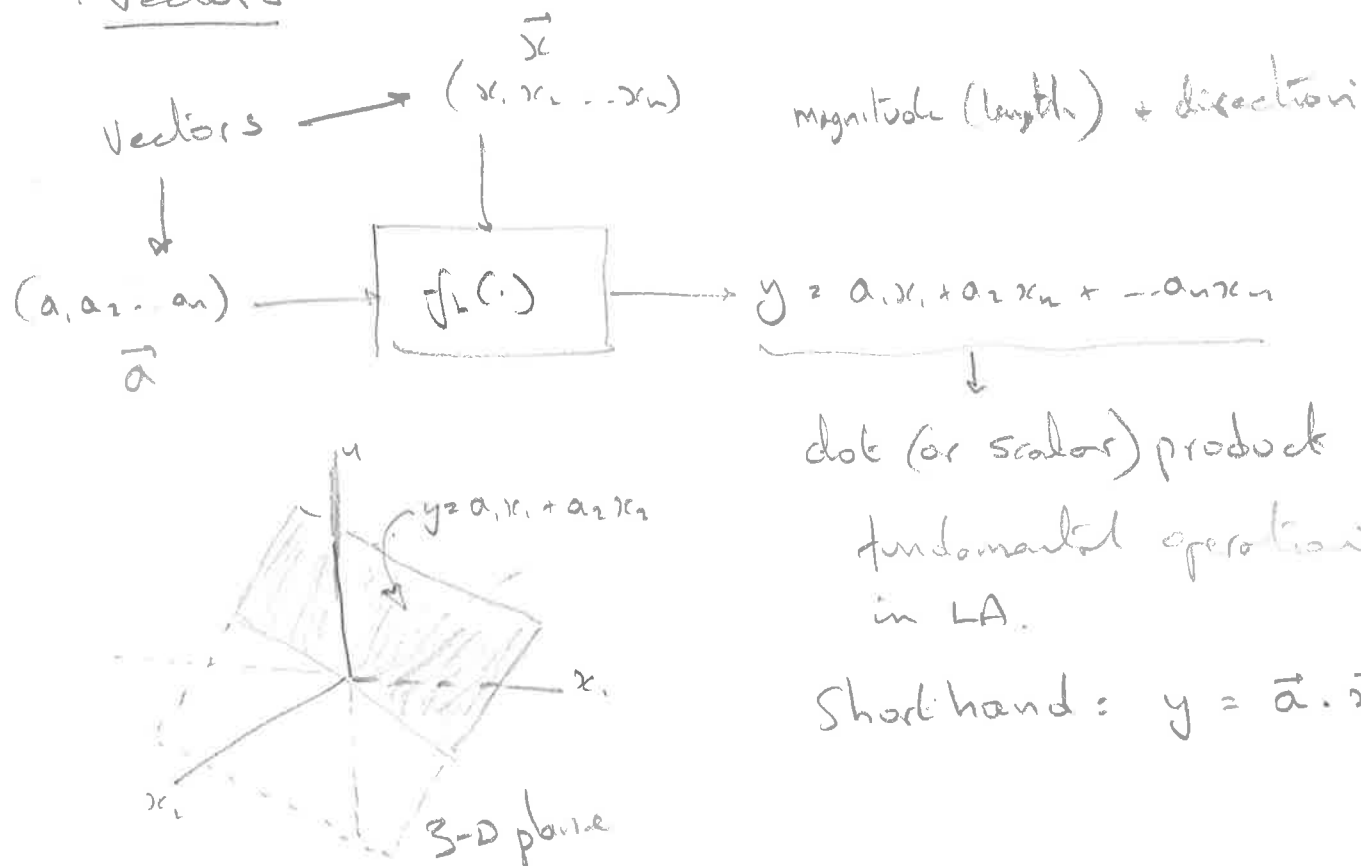 Vectors
x⃗
(x₁ x₂ ... xₙ)
Vectors
magnitude (length) + direction
(a₁ a₂ ... aₙ)
a⃗
f_L(.)
y = a₁x₁ + a₂xₙ + ... aₙxₙ
dot (or scalar) product
fundamental operation
in LA.
Shorthand: y = a⃗ . x⃗
y = a₁x₁ + a₂x₂
x₁
x₂
3-D plane